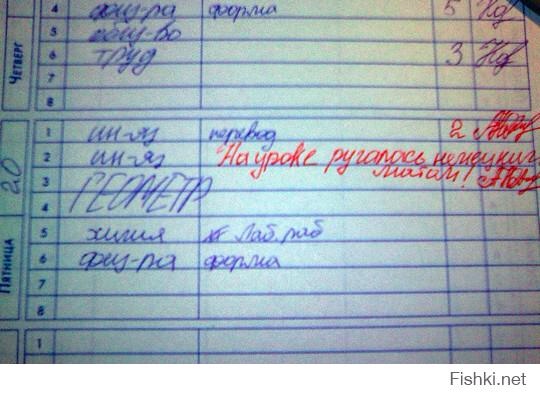 ЧЕТВЕРГ
4 физ-ра форма 5
5 общ-во
6 труд 3
7
8
20
ПЯТНИЦА
1 ин-яз перевод 2
2 ин-яз На уроке ругалась немецким
матом!
3 ГЕОМЕТР
4
5 химия Лаб. раб
6 физ-ра форма
7
8
1
Fishki.net